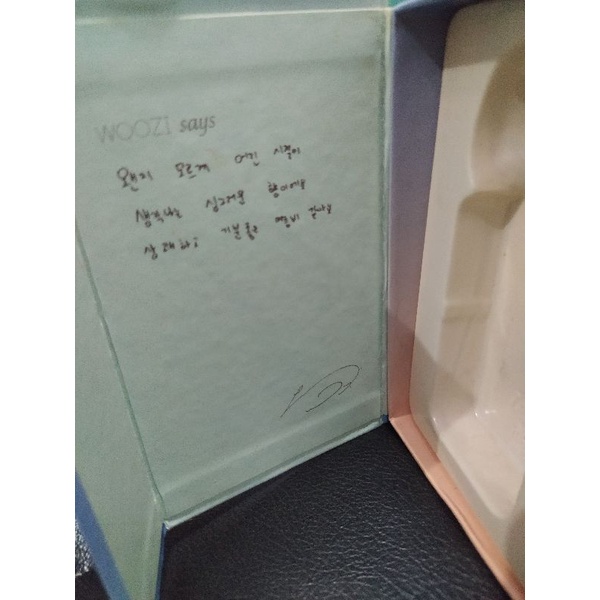 WOOZI says
왠지 모르게 어린 시절이
생각나는 싱그러운 향이에요
상쾌하고 기분 좋은